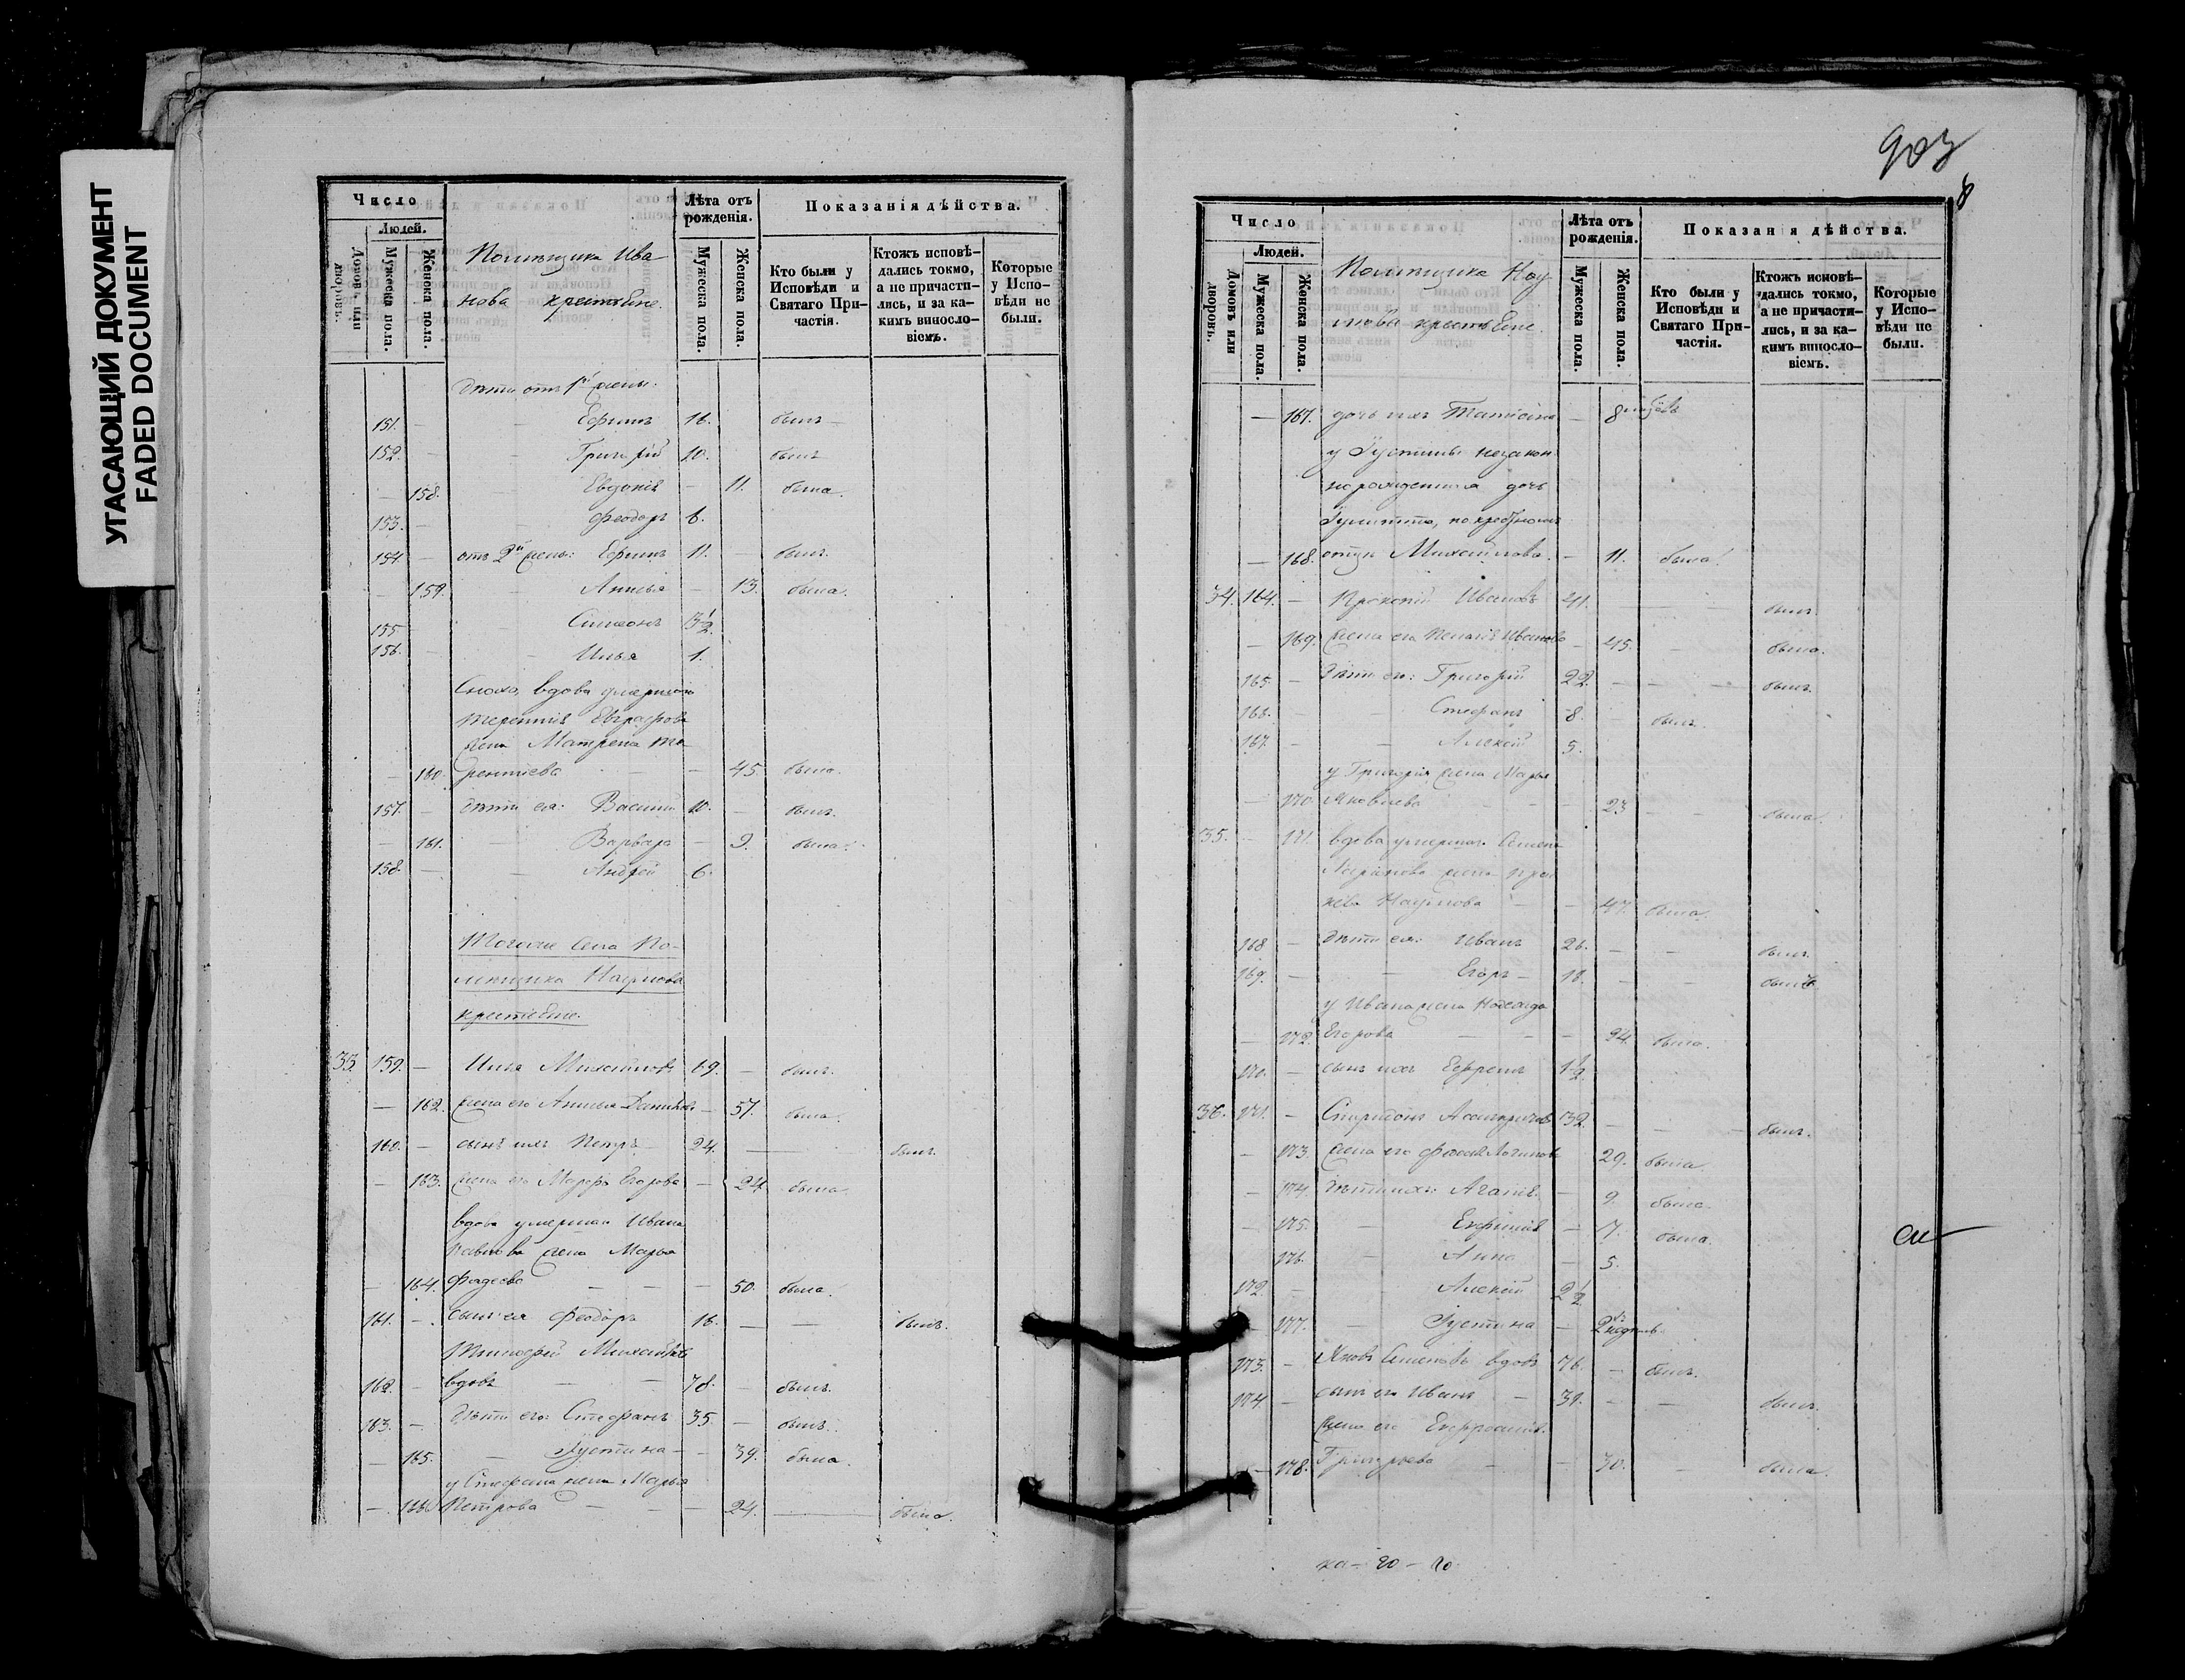 УГАСАЮЩИЙ ДОКУМЕНТ
FADED DOCUMENT
Число
Людей.
Домовъ или дворовъ.
Мужеска пола.
Женска пола.
Помѣщика Ива
нова крестьяне.
Лѣта отъ рожденія.
Мужеска пола.
Женска пола.
Показанія дѣйства.
Кто были у Исповѣди и Святаго Причастія.
Ктожъ исповѣ-
дались токмо,
а не причасти-
лись, и за ка-
кимъ винословіемъ.
Которые
у Испо-
вѣди не
были.
дѣти отъ 1й жены:
151. Ефимъ 16. былъ
152. Григорій 10. былъ
158. Евдокія 11. была.
153. Феодоръ 6.
154. отъ 2й жены: Ефимъ 11. былъ.
159. Анисья 13. была.
155 Симеонъ 3½.
156. Илья 1.
Сноха, вдова умершаго
Терентія
жена Матрена Те-
160. рентіева 45. была.
157. дѣти ея: Василій 10. былъ.
161. Варвара 9. была.
158. Андрей 6.
Тогоже села По-
мѣщика Наумова
крестьяне.
33. 159. Илья Михайловъ 69. былъ.
162. жена его Анисья 57. была.
160. сынъ ихъ Петръ 24. былъ.
163. жена его Егорова 24. была
вдова умершаго Ивана
Павлова жена Марья
164. Фадеева 50. была.
161. сынъ ея Феодоръ 16. былъ.
Тимофей Михайловъ
162. вдовъ 78. былъ.
163. дѣти его: Стефанъ 35. былъ.
165. Іустина 39. была.
у Стефана жена Марья
166. Петрова 24. была.
903
Число
Людей.
Домовъ или дворовъ.
Мужеска пола.
Женска пола.
Помѣщика Нау
мова крестьяне.
Лѣта отъ рожденія.
Мужеска пола.
Женска пола.
Показанія дѣйства.
Кто были у
Исповѣди и
Святаго При-
частія.
Ктожъ исповѣ-
дались токмо,
а не причасти-
лись, и за ка-
кимъ винословіемъ.
Которые
у Испо-
вѣди не
были.
167. дочь ихъ 8
у Іустины незакон
норожденная дочь
168. отцу Михайлова. 11. была.
34. 164. Прокопій Ивановъ 41. былъ.
169. жена его Пелагія Иванова 45. была.
165. дѣти его: Григорій 22. былъ.
166. Стефанъ 8. былъ.
167. Алексій 5.
у Григорія жена Марья
170. Яковлева 23 была.
35. 171. вдова умершаго Семена
жена
Наумова 47. была.
168. дѣти ея: Иванъ 26. былъ.
169. Егоръ 18. былъ.
у Ивана жена Надежда
172. Егорова 24. была.
170. сынъ ихъ Ефремъ 1½
36. 171. Спиридонъ 32. былъ.
173. жена его 29. была.
174. дѣти ихъ: Агапія 9. была.
175. Евфимія 7. была.
176. Анна 5.
172. Алексій 2½
177. Іустина 2
173. Яковъ Семеновъ вдовъ 76. былъ.
174. сынъ его Иванъ 31. былъ.
жена его Евфросинія
178. Григорьева 30. была.